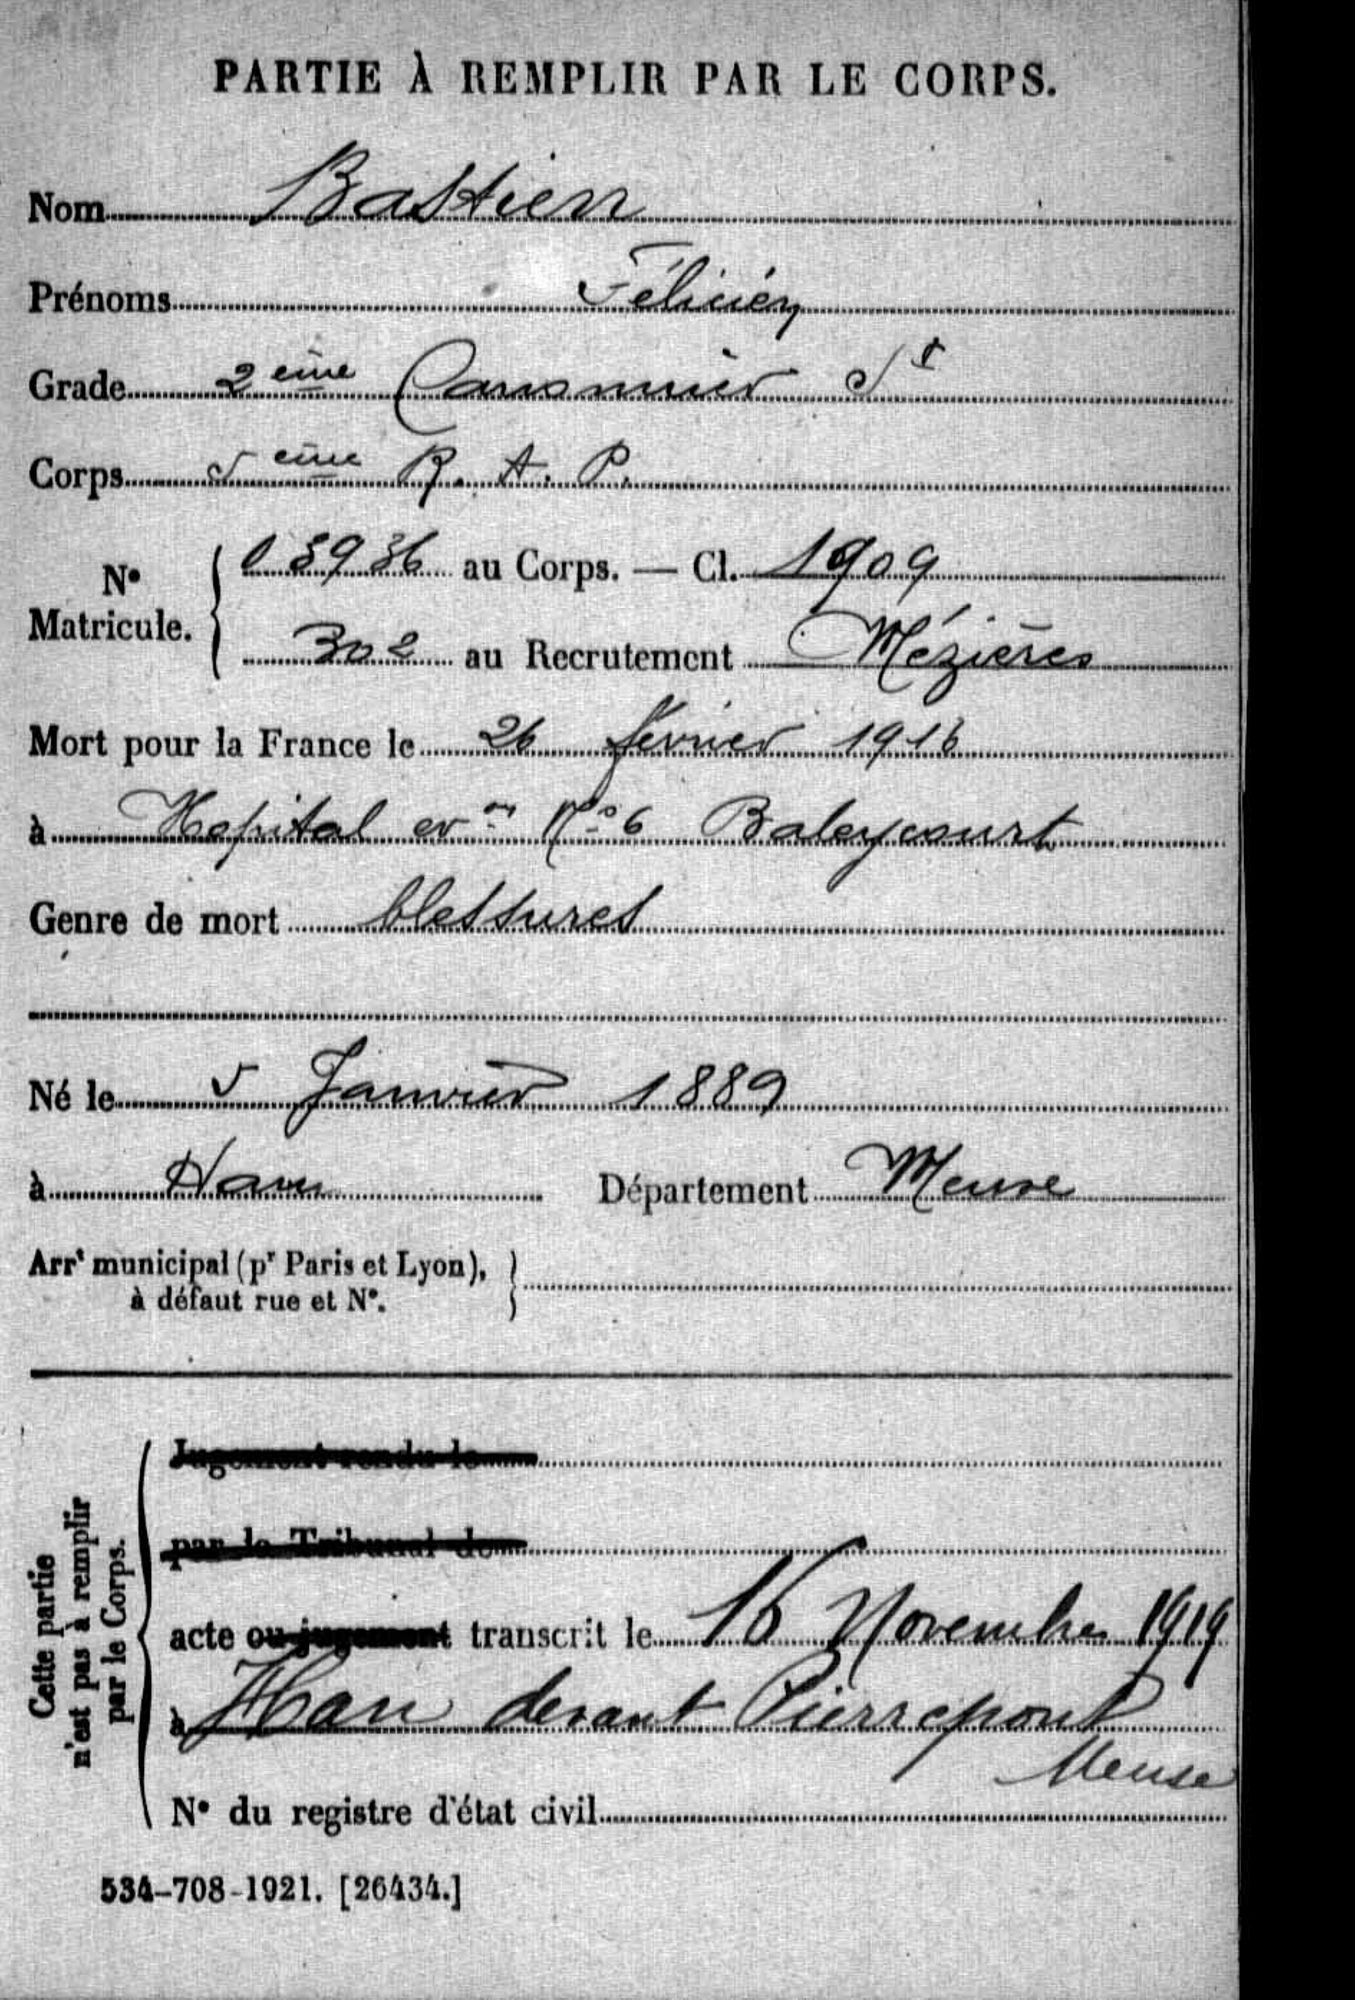 PARTIE À REMPLIR PAR LE CORPS.
Nom Bastien
Prénoms Félicien
Grade 2ème Canonnier St
Corps 5ème R. A. P.
N° Matricule. { 03936 au Corps. — Cl. 1909
302 au Recrutement Mézières
Mort pour la France le 26 février 1916
à Hopital evon No 6 Baleycourt
Genre de mort blessures
Né le 5 Janvier 1889
à Han Département Meuse
Arrt municipal (pr Paris et Lyon), à défaut rue et N°. }
Cette partie n'est pas à remplir par le Corps.
Jugement rendu le
par le Tribunal de
acte ou jugement transcrit le 16 Novembre 1919
à Han devant Pierrepont
Meuse
N° du registre d'état civil
534-708-1921. [26434.]